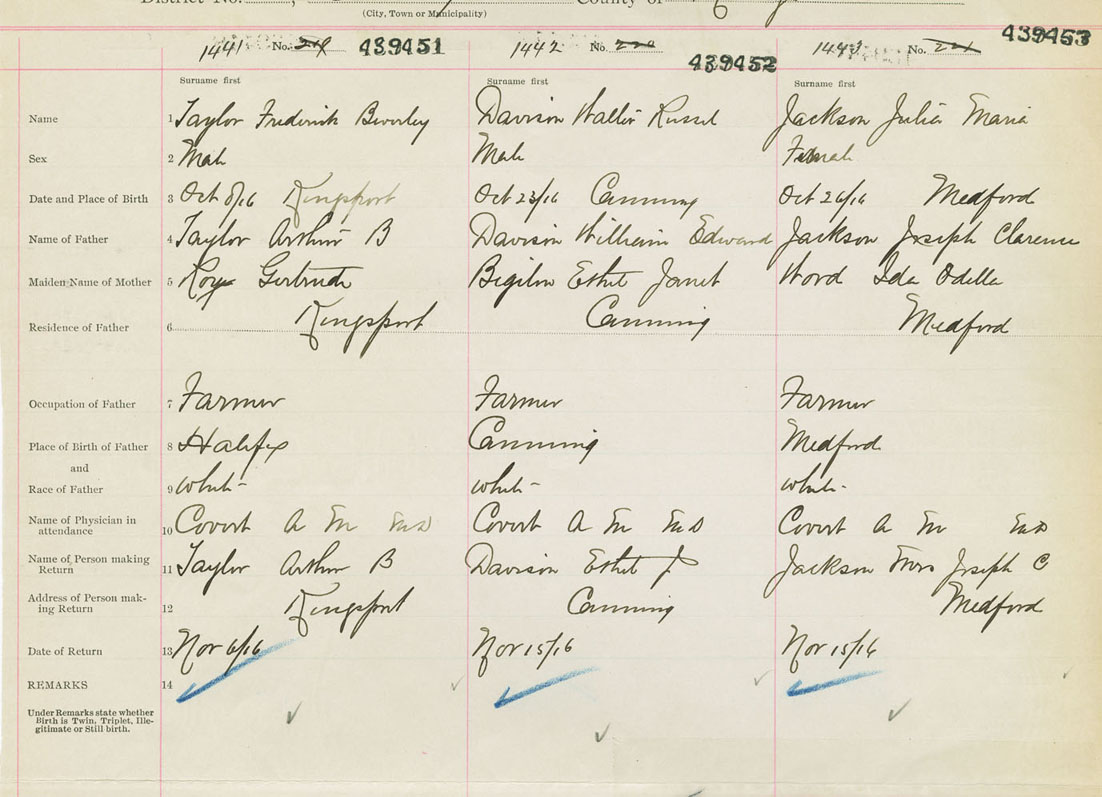 District No. County of
(City, Town or Municipality)
1441 No. 219 439451 1442 No. 220 439452 1443 No. 221 439453
Surname first Surname first Surname first
Name 1 Taylor Frederick Beverley Davison Walter Russel Jackson Julia Maria
Sex 2 Male Male Female
Date and Place of Birth 3 Oct 8/16 Kingsport Oct 23/16 Canning Oct 26/16 Medford
Name of Father 4 Taylor Arthur B Davison William Edward Jackson Joseph Clarence
Maiden Name of Mother 5 Roy Gertrude Ethel Janet Word Ida Odella
Residence of Father 6 Kingsport Canning Medford
Occupation of Father 7 Farmer Farmer Farmer
Place of Birth of Father 8 Halifax Canning Medford
and
Race of Father 9 white white white
Name of Physician in
attendance 10 Covert A M M D Covert A M M D Covert A M M D
Name of Person making
Return 11 Taylor Arthur B Davison Ethel J Jackson Mrs Joseph C
Address of Person mak-
ing Return 12 Kingsport Canning Medford
Date of Return 13 Nov 6/16 Nov 15/16 Nov 15/16
REMARKS 14
Under Remarks state whether
Birth is Twin, Triplet, Ille-
gitimate or Still birth.